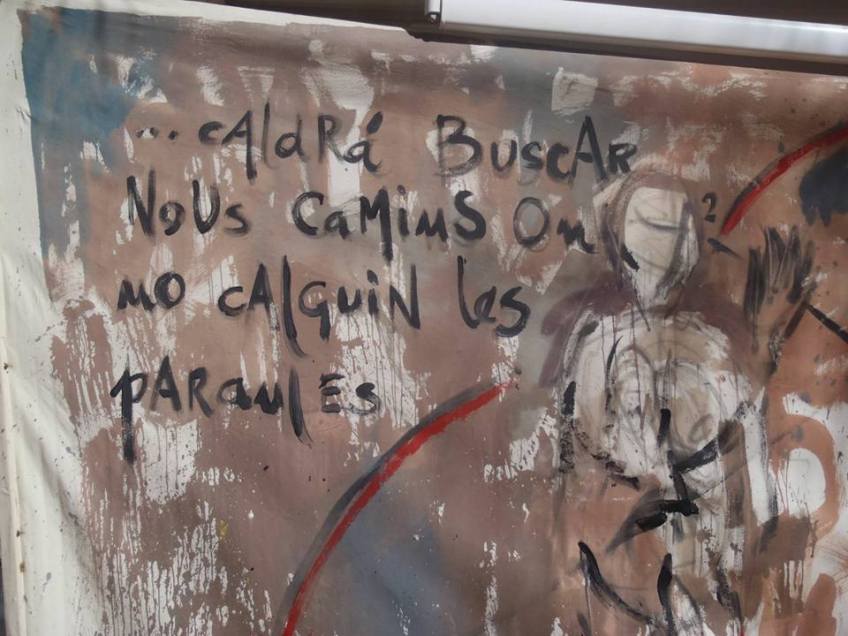 ...cAldRá BuscAR
NoUs CaMiNS On
no cAlguiN les
pARaulEs